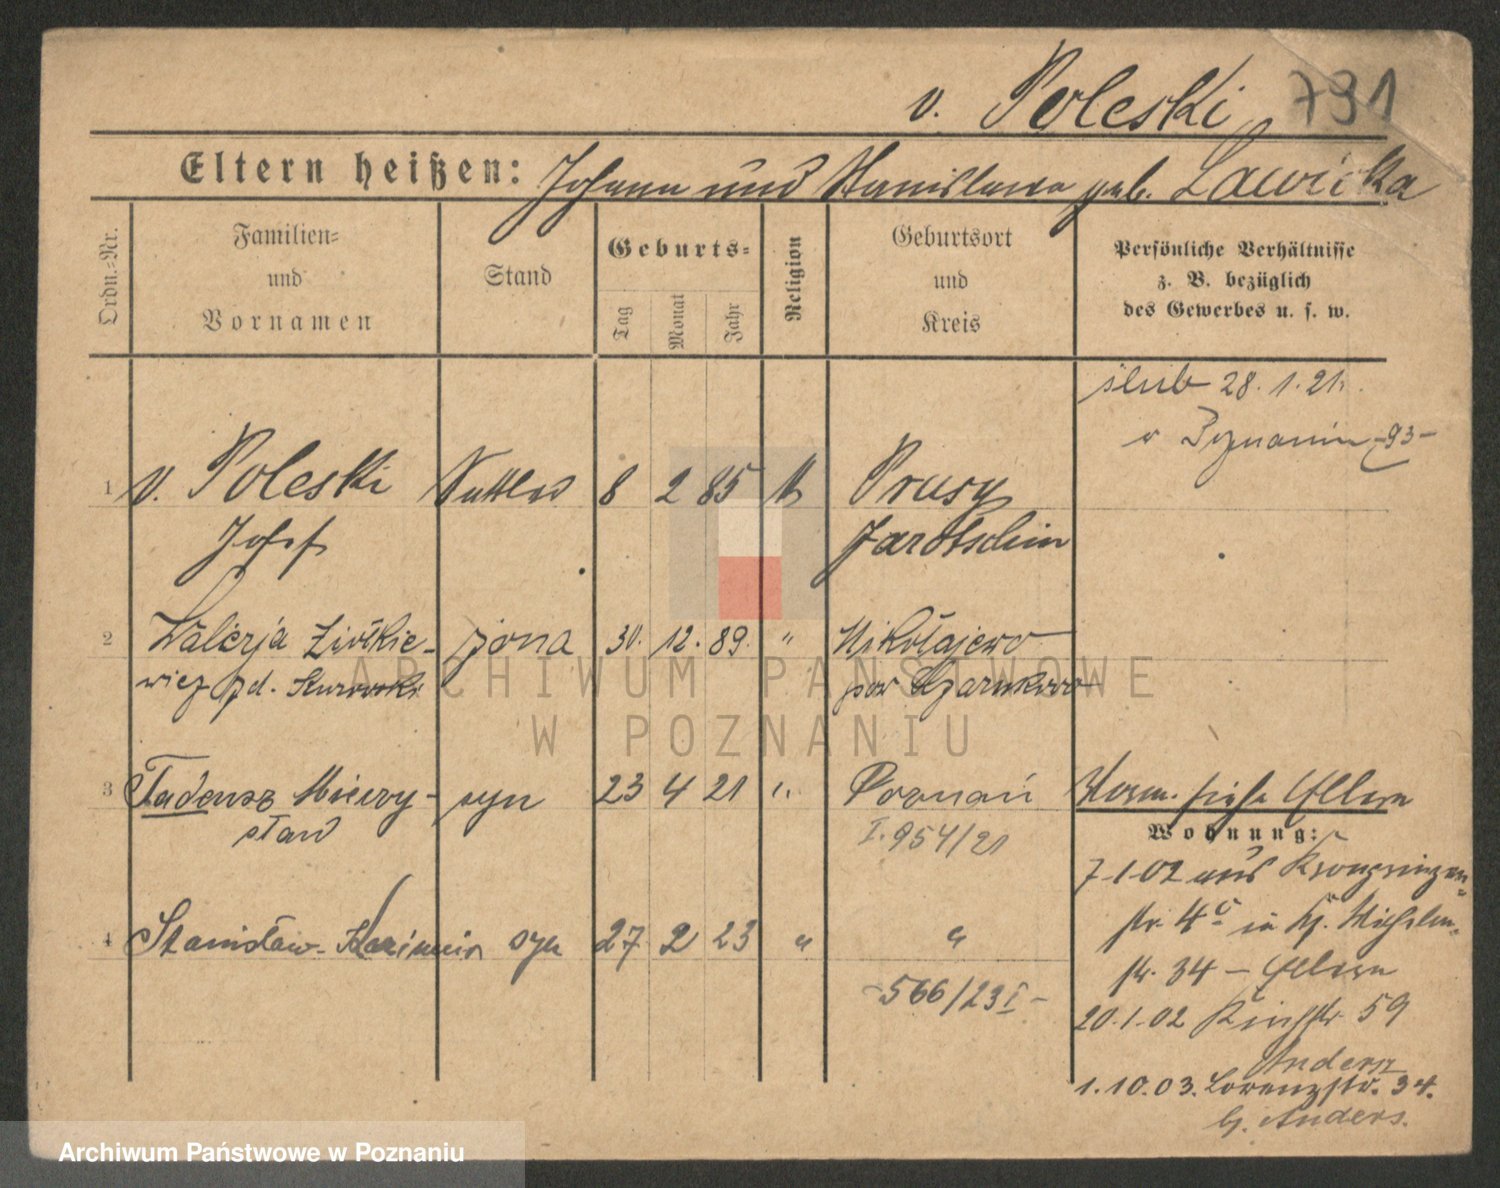 v. Poleski 791
Eltern heißen: Johann und Stanislawa geb. Lawicka
Ordn.=Nr.
Familien=
und
Vornamen
Stand
Geburts=
Tag
Monat
Jahr
Religion
Geburtsort
und
Kreis
Persönliche Verhältnisse
z. B. bezüglich
des Gewerbes u. s. w.
ślub 28.1.21.
w Poznaniu -93-
1 v. Poleski Sattler 8 2 85 k Prusy
Josef Jarotschin
2 Walerja Ziółkie- żona 30. 12. 89. " Mikołajewo
wicz zd. pow Czarnkowo
3 Tadeusz Mieczy- syn 23 4 21 " Poznań
sław I. 954/21
siehe Eltern
Wohnung:
7-1-02 aus Kronprinzen=
str. 4c in Kg. Wilhelm-
str. 34 - Eltern
4 Stanisław-Kazimierz syn 27 2 23 " "
-566/23 I-
20.1.02 59
Anders
1.10.03. Lorenzstr. 34.
b/. Anders.
ARCHIWUM PAŃSTWOWE
W POZNANIU
Archiwum Państwowe w Poznaniu